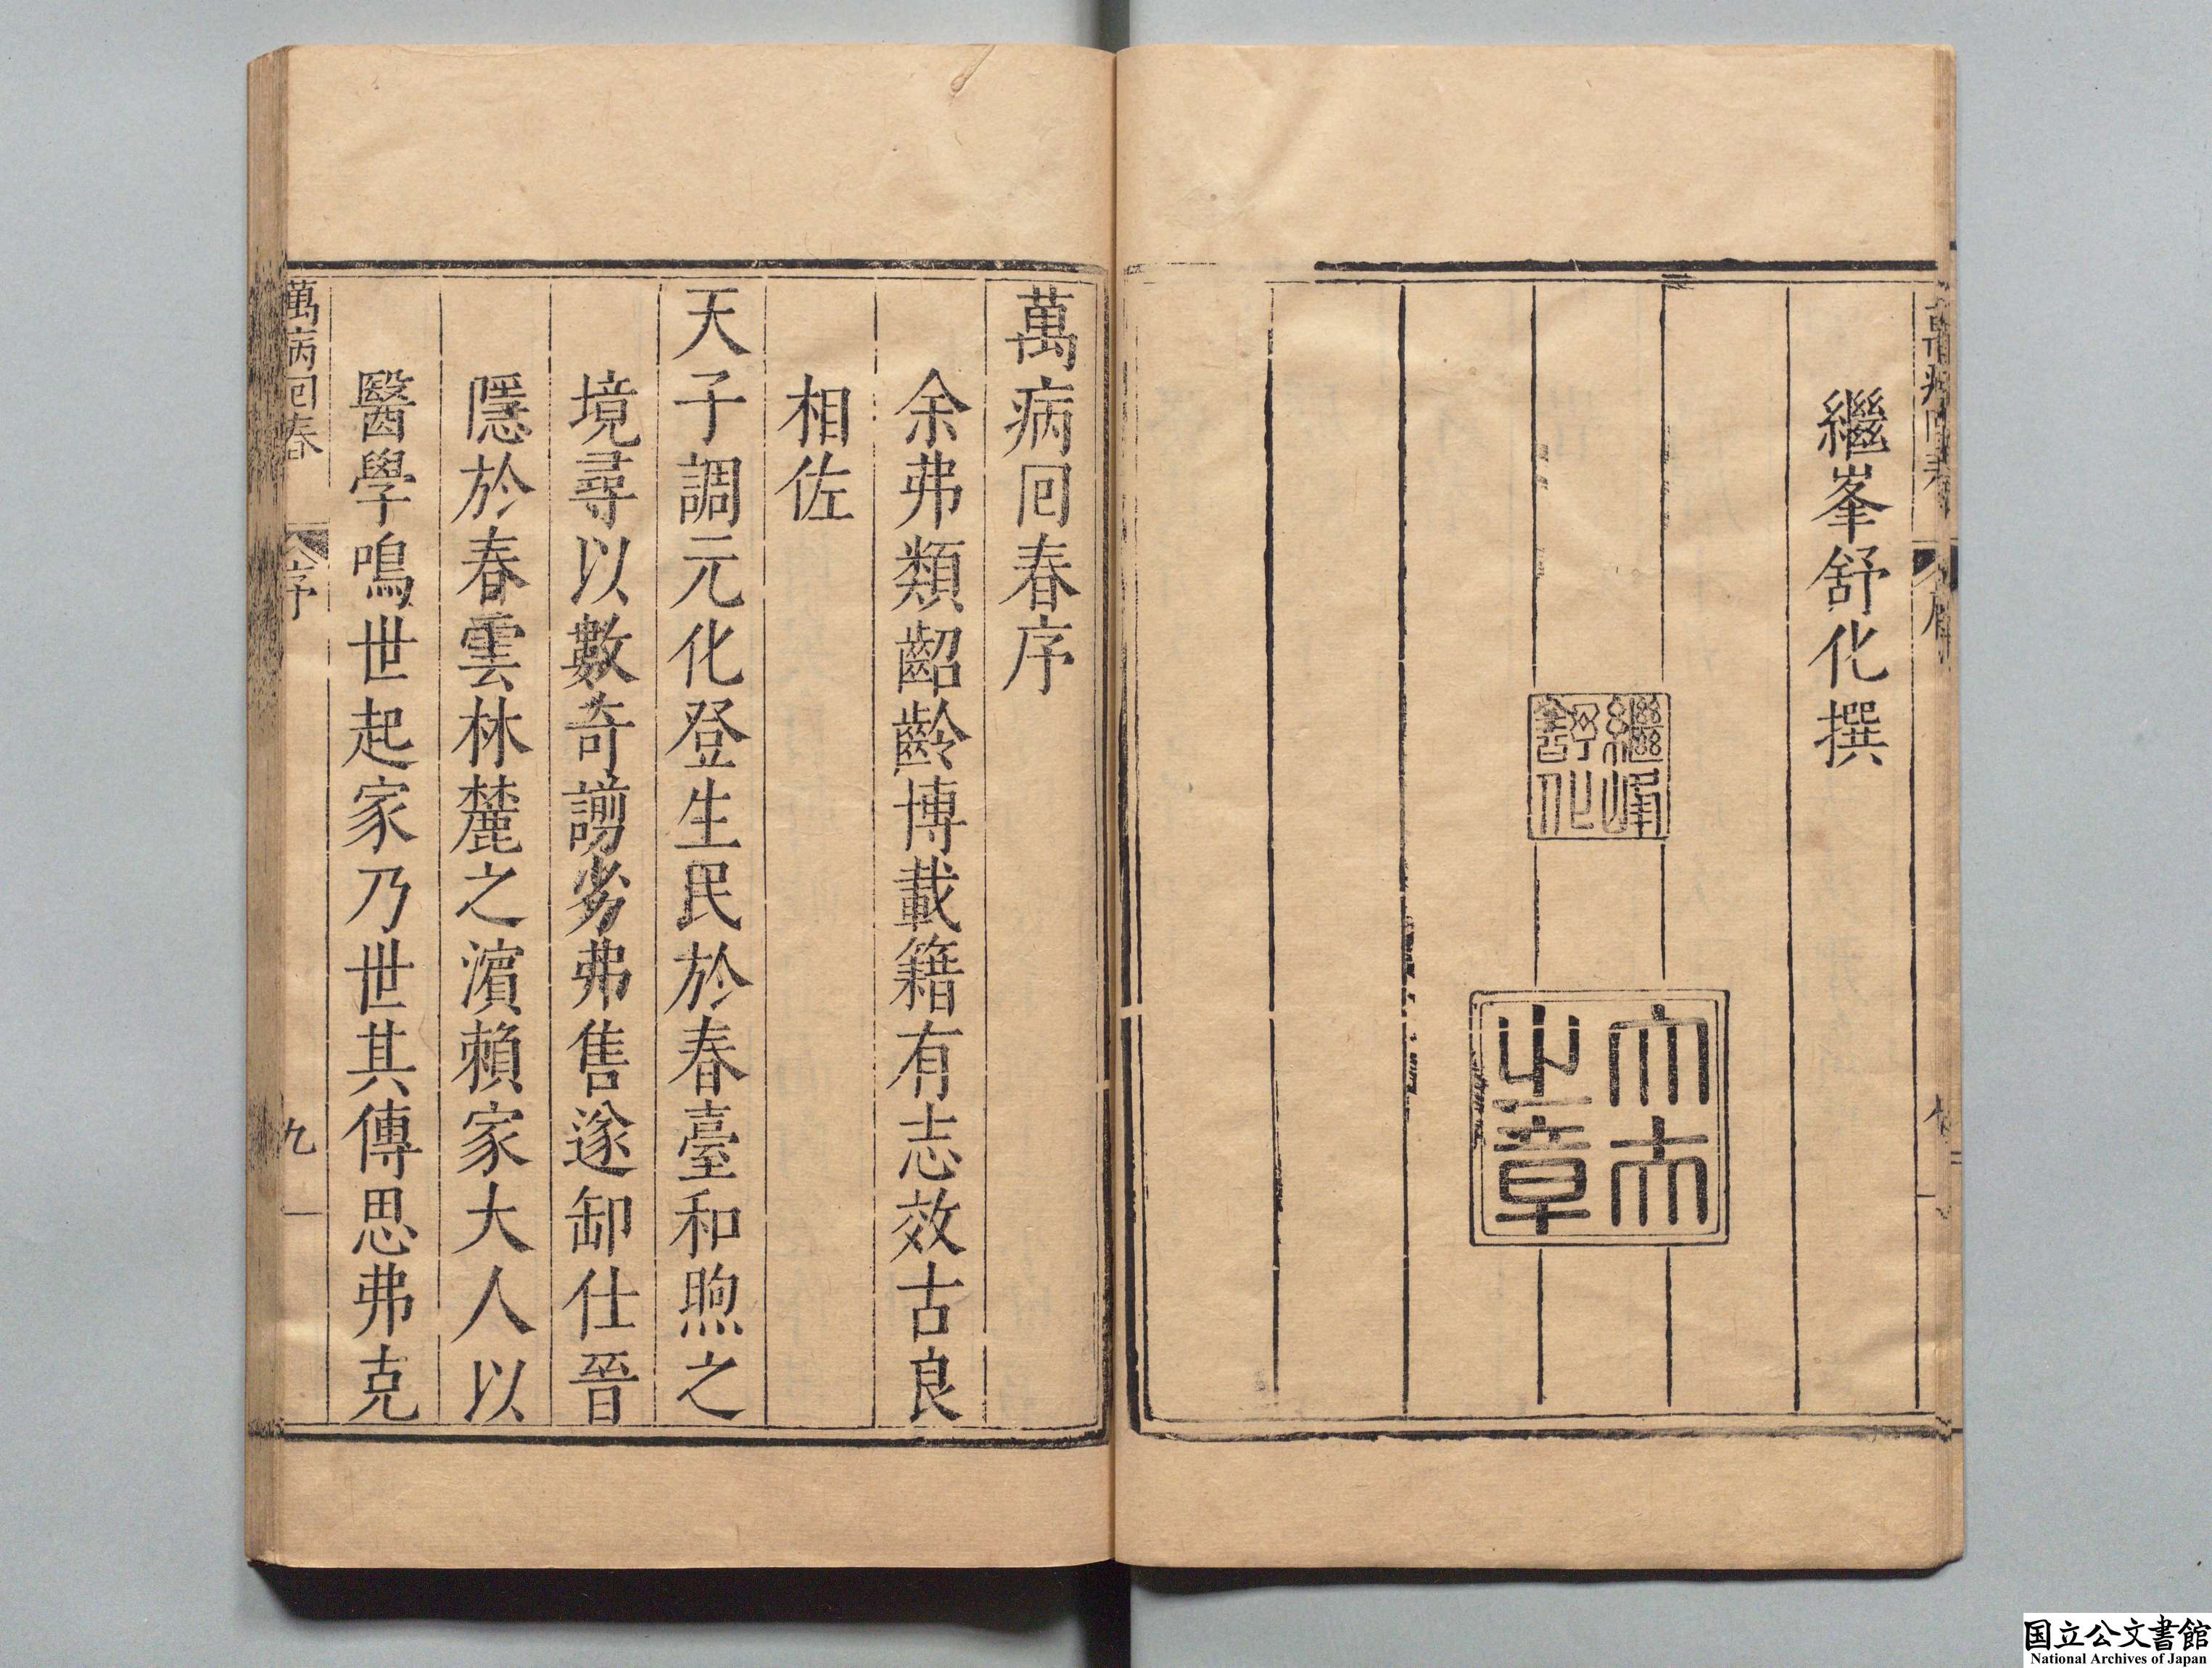 繼峯舒化撰
繼峰
舒化
之章
萬病囘春序
余弗類齠齡博載籍有志效古良
相佐
天子調元化登生民於春臺和煦之
境尋以數奇謭劣弗售遂卸仕晉
隱於春雲林麓之濵賴家大人以
醫學鳴世起家乃世其傳思弗克
萬病囘春
序
九
国立公文書館
National Archives of Japan